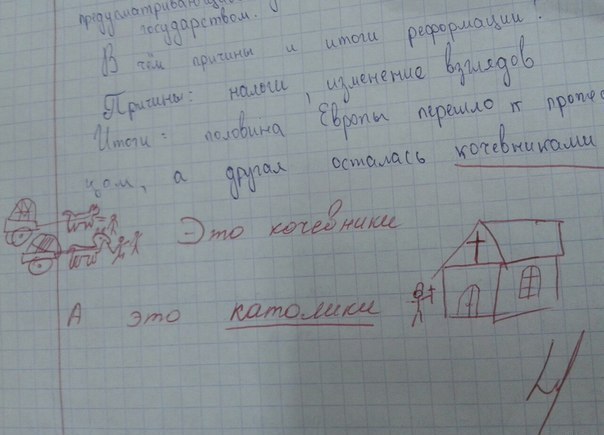 предусматривающ
государством.
В чём причины и итоги реформации?
Причины: налоги, изменение взглядов
Итоги: половина Европы перешло к протес
цом, а другая осталась кочевниками
Это кочевники
А это католики
4